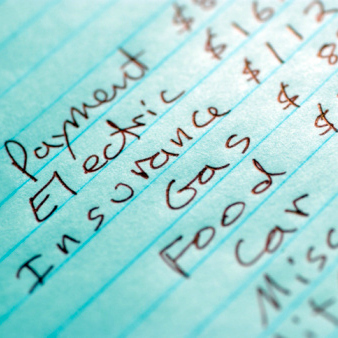 Payment $8
Electric $16
Insurance $112
Gas $ 8
Food $
Car
Misc